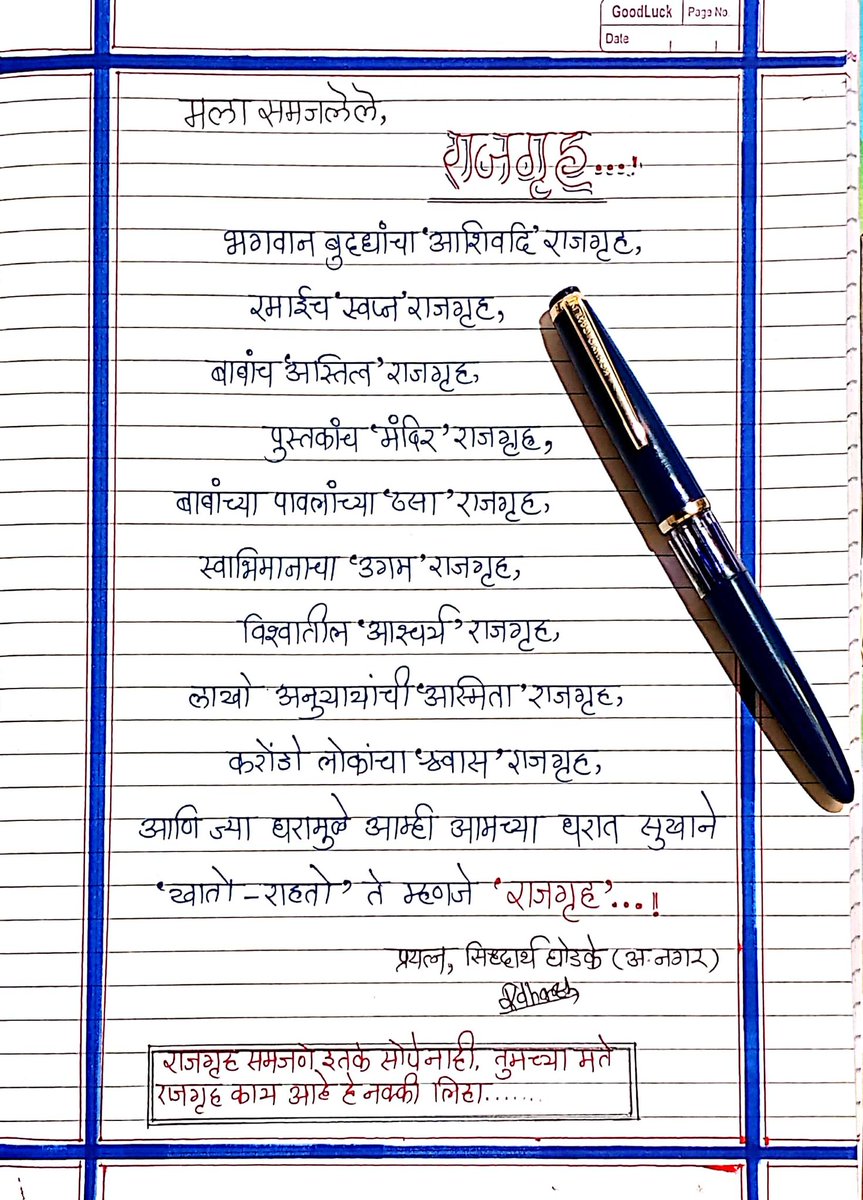 GoodLuck Page No.
Date
मला समजलेले,
राजगृह....!
भगवान बुद्धांचा 'आशिर्वाद' राजगृह,
रमाईच 'स्वप्न' राजगृह,
बाबांच 'अस्तित्व' राजगृह,
पुस्तकांच 'मंदिर' राजगृह,
बाबांच्या पावलांच्या 'ठसा' राजगृह,
स्वाभिमानाचा 'उगम' राजगृह,
विश्वातील 'आश्चर्य' राजगृह,
लाखो अनुयायांची 'अस्मिता' राजगृह,
करोडो लोकांचा 'श्वास' राजगृह,
आणि ज्या घरामुळे आम्ही आमच्या घरात सुखाने
'खातो - राहतो' ते म्हणजे 'राजगृह'...!
प्रयत्न, सिध्दार्थ घोडके (अ.नगर)
राजगृह समजणे इतके सोपे नाही. तुमच्या मते
राजगृह काय आहे हे नक्की लिहा.......